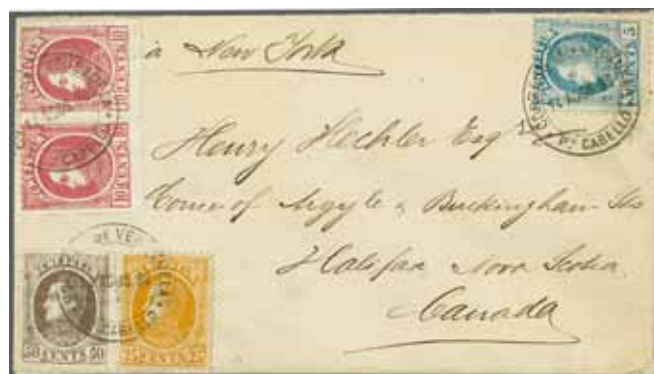 via New York
Henry Hechler Esq
Corner of Argyle & Buckingham Sts
Halifax Nova Scotia
Canada
10 CENTS 10
10 CENTS 10
5
CABELLO
50 CENTS 50
25 CENTS 25